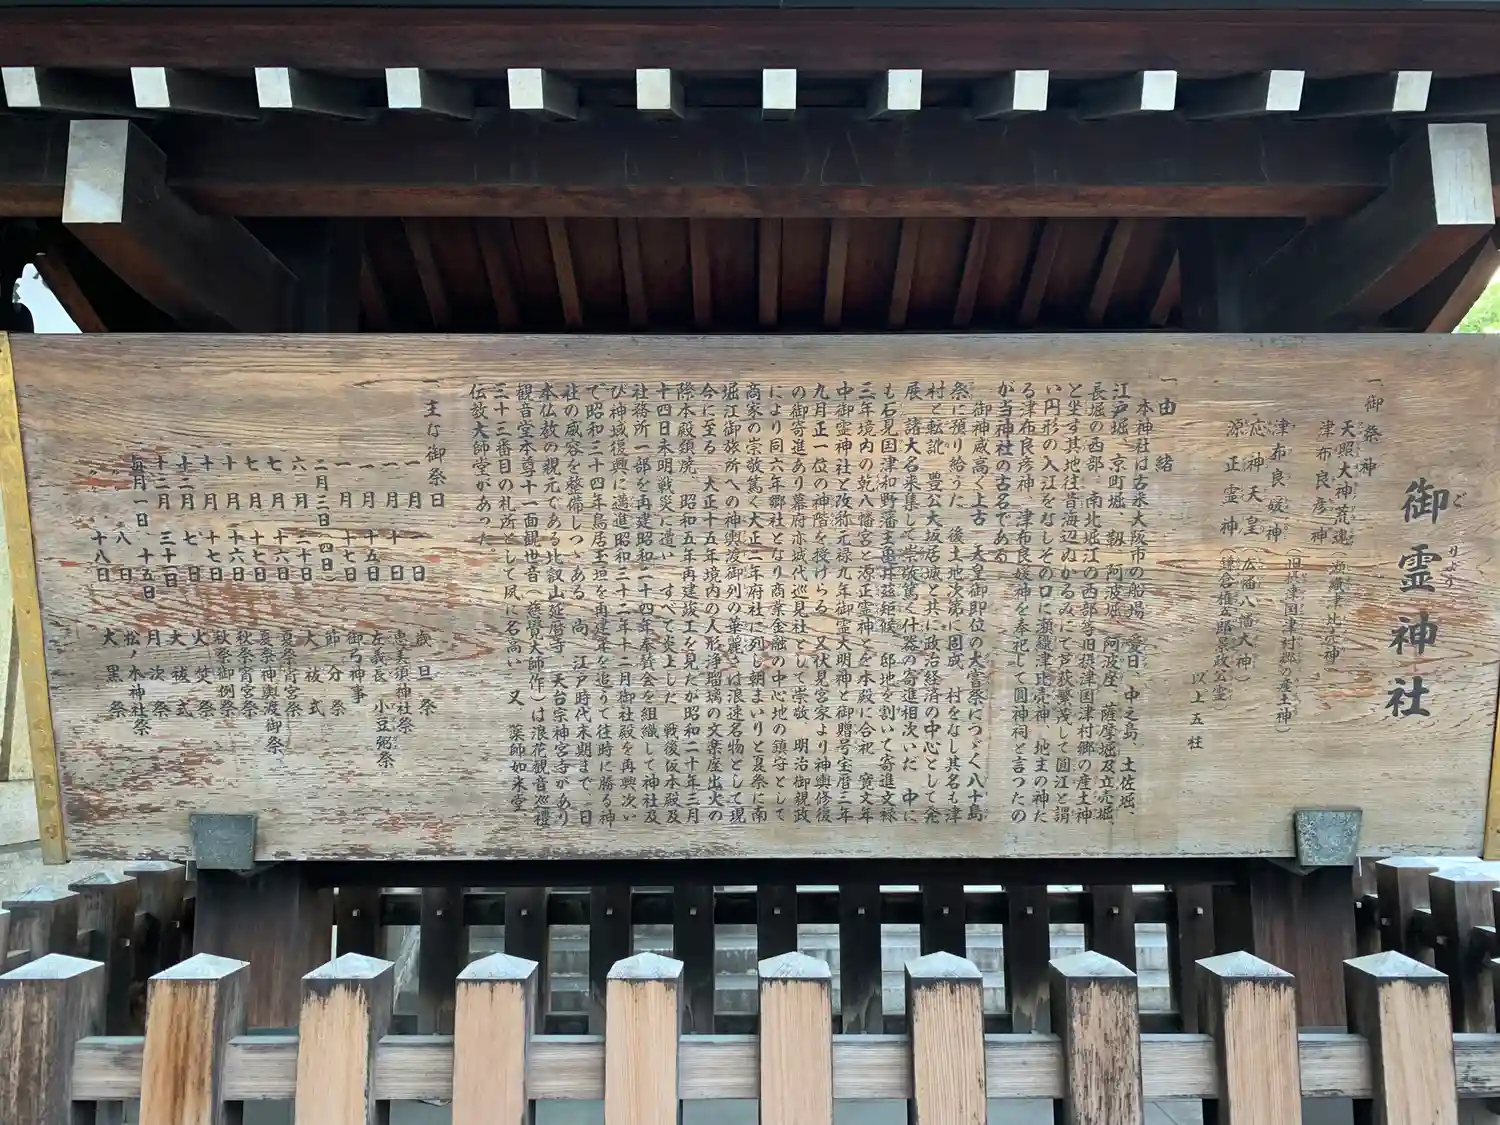 御霊神社
ごりょう
一御祭神
天照大神荒魂（瀬織津比売神）
津布良彦神
津布良媛神（旧摂津国津村郷の産土神）
応神天皇（広幡八幡大神）
源正霊神（鎌倉権五郎景政公霊）
以上五柱
一由緒
本神社は古来大阪市の船場、愛日、中之島、土佐堀、
江戸堀、京町堀、靱、阿波堀、阿波座、薩摩堀及立売堀、
長堀の西部、南北堀江の西部等旧摂津国津村郷の産土神
と坐す其地往昔海辺ぬかるみにて芦荻繁茂して圓江と謂
い円形の入江をなしその口に瀬織津比売神、地主の神た
る津布良彦神、津布良媛神を奉祀して圓神祠と言つたの
が当神社の古名である
御神威高く上古、天皇御即位の大嘗祭につゞく八十島
祭に預り給うた 後土地次第に固成、村をなし其名も津
村と転訛、豊公大坂居城と共に政治経済の中心として発
展、諸大名来集して崇敬篤く什器の寄進相次いだ 中に
も石見国津和野藩主亀井茲矩候、邸地を割いて寄進文禄
三年境内の乾八幡宮と源正霊神とを本殿に合祀、寛文年
中御霊神社と改称元禄九年御霊大明神と御贈号宝暦三年
九月正一位の神階を授けらる 又伏見宮家より神輿修復
の御寄進あり幕府亦城代巡見社として崇敬、明治御親政
により同六年郷社となり商業金融の中心地の鎮守として
商家の崇敬篤く大正二年府社に列し朝まいりと夏祭に南
堀江御旅所への神輿渡御列の華麗さは浪速名物として現
今に至る 大正十五年境内の人形浄瑠璃の文楽座出火の
際本殿類焼、昭和五年再建竣工を見たが昭和二十年三月
十四日未明戦災に遭い、すべて炎上した 戦後仮本殿及
社務所一部を再建昭和二十四年奉賛会を組織して神社及
び神域復興に邁進昭和三十二年十二月御社殿を再興次い
で昭和三十四年鳥居玉垣を再建年を追うて往時に勝る神
社の威容を整備しつゝある 尚、江戸時代末期まで、日
本仏教の親元である比叡山延暦寺、天台宗神宮寺があり
観音堂本尊十一面観世音（慈覺大師作）は浪花観音巡禮
三十三番目の札所として夙に名高い 又、薬師如来堂、
伝教大師堂があった。
一主な御祭日
一月一日 歳旦祭
一月十日 恵美須神社祭
一月十五日 左義長、小豆粥祭
一月十七日 御弓神事
二月三日（四日） 節分祭
六月三十日 大祓式
七月十六日 夏祭宵宮祭
七月十七日 夏祭神輿渡御祭
十月十六日 秋祭宵宮祭
十月十七日 秋祭御例祭
十一月七日 火焚祭
十二月三十一日 大祓式
毎月一日、十五日 月次祭
〃八日 松ノ木神社祭
〃十八日 大黒祭